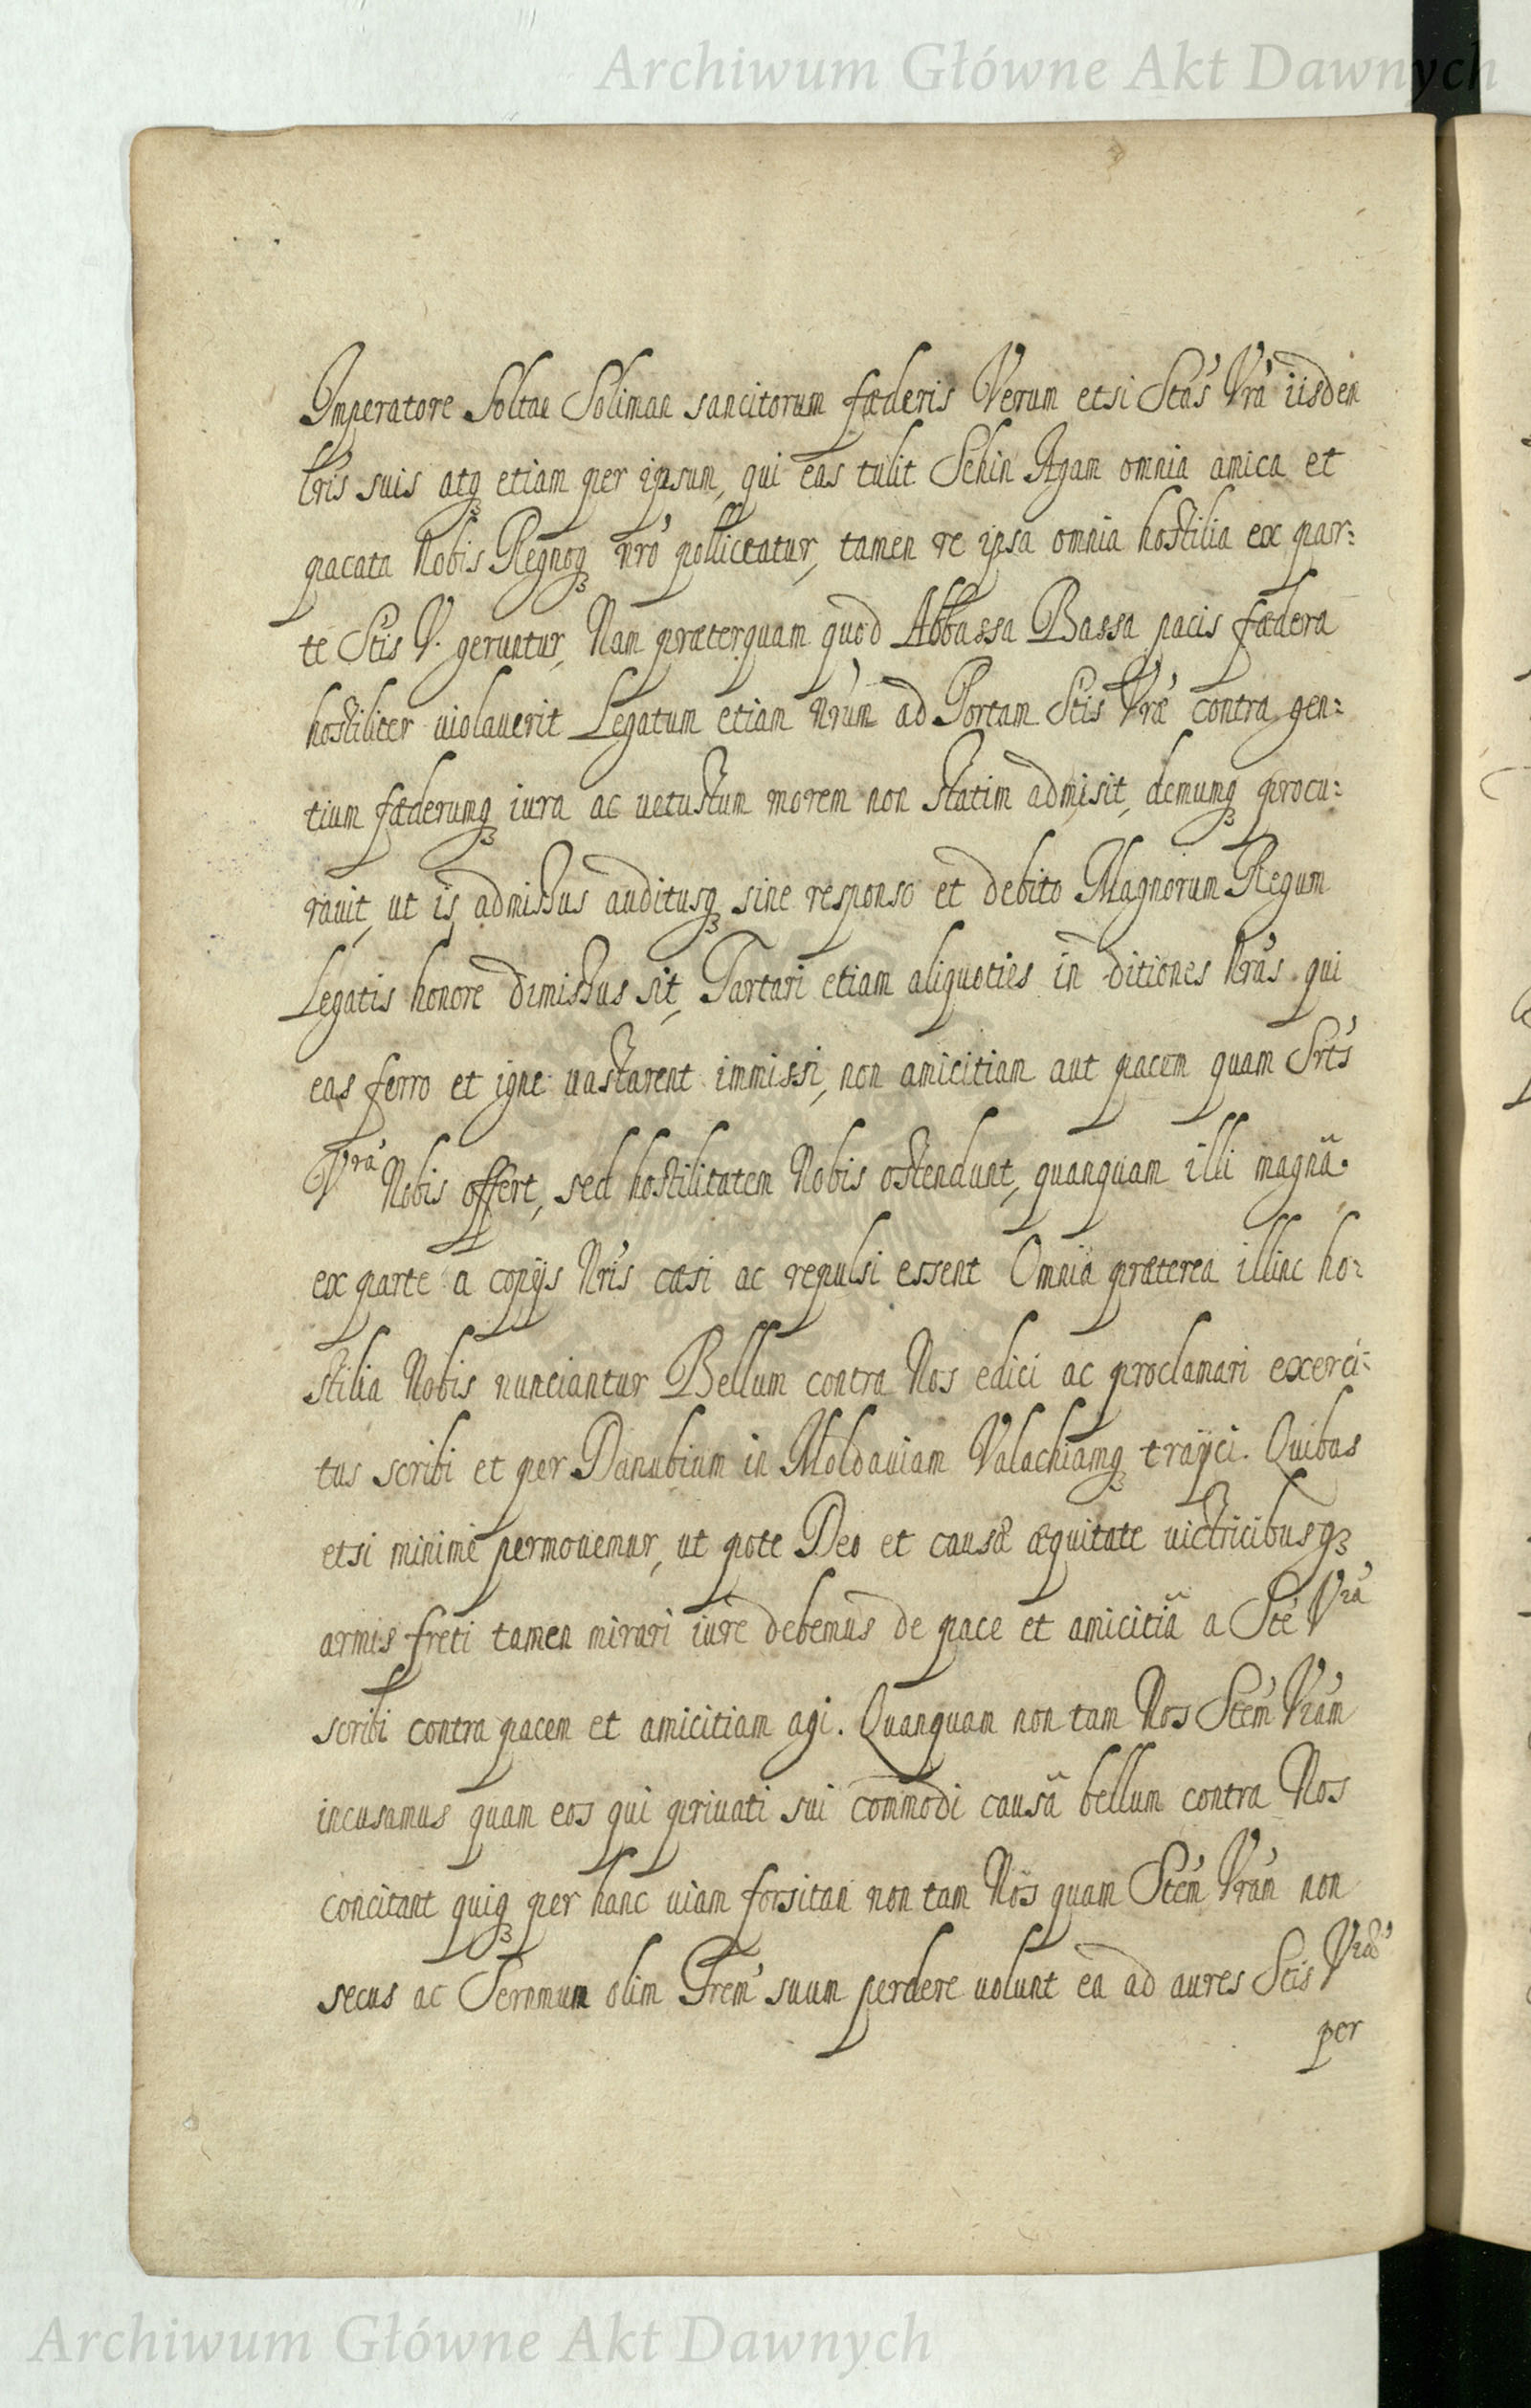 Archiwum Główne Akt Dawnych
Imperatore Soltan Soliman sancitorum fæderis Verum etsi Stas Vra iisdem
lris suis atq₃ etiam per ipsum, qui eas tulit Schin Agam omnia amica et
pacata Nobis Regnoq₃ nro pollicetatur, tamen re ipsa omnia hostilia ex par:
te Stis V. geruntur, Nam præterquam quod Abbassa Bassa pacis fædera
hostiliter uiolauerit Legatum etiam Nrum ad Portam Stis Vræ contra gen:
tium fæderumq₃ iura ac uetustum morem non statim admisit, demumq₃ procu:
rauit, ut is admissus auditusq₃ sine responso et debito Magnorum Regum
Legatis honore dimissus sit, Tartari etiam aliquoties in ditiones Nras qui
eas ferro et igne uastarent immissi, non amicitiam aut pacem quam Srts
Vra Nobis offert, sed hostilitatem Nobis ostendunt, quanquam illi magnã
ex parte a copijs Nris cæsi ac repulsi essent Omnia præterea illinc ho:
stilia Nobis nunciantur Bellum contra Nos edici ac proclamari exerci:
tus scribi et per Danubium in Moldauiam Valachiamq₃ traÿci. Quibus
etsi minimè permouemur, ut pote Deo et causæ æquitate uictricibusq₃
armis freti tamen mirari iure debemus de pace et amicitiã a Ste Vra
scribi contra pacem et amicitiam agi. Quanquam non tam Nos Stem Vram
incusamus quam eos qui priuati sui commodi causã bellum contra Nos
concitant quiq₃ per hanc uiam forsitan non tam Nos quam Stem Vram non
secus ac Sernmum olim Frem suum perdere uolunt ea ad aures Stis Vræ
per
Archiwum Główne Akt Dawnych